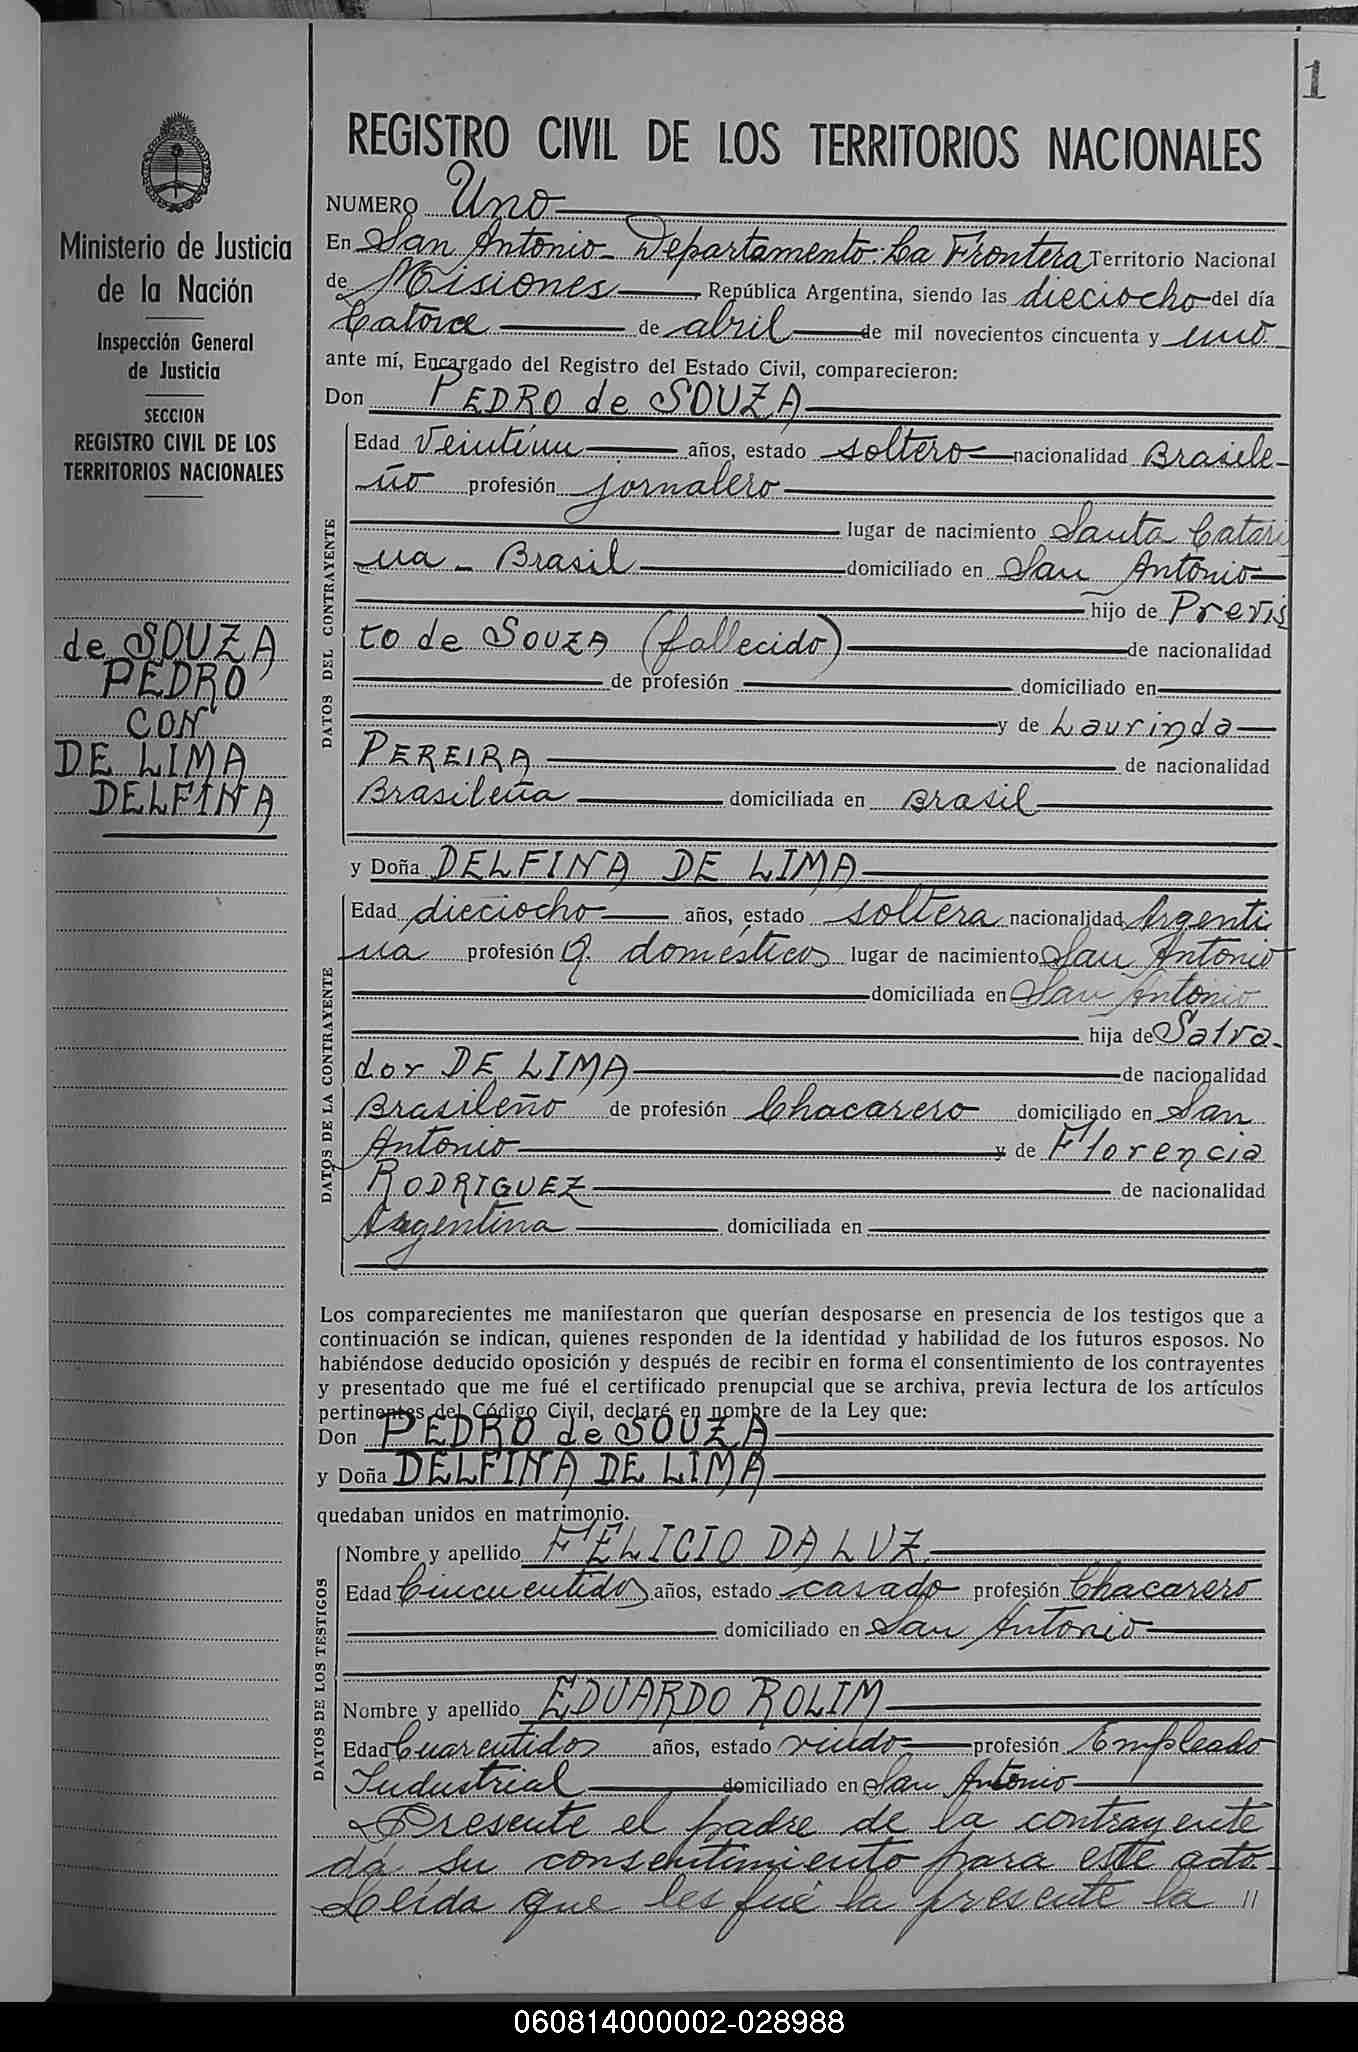 1
Ministerio de Justicia
de la Nación
Inspección General
de Justicia
SECCION
REGISTRO CIVIL DE LOS
TERRITORIOS NACIONALES
de SOUZA
PEDRO
CON
DE LIMA
DELFINA
REGISTRO CIVIL DE LOS TERRITORIOS NACIONALES
NUMERO Uno
En San Antonio - Departamento: La Frontera Territorio Nacional
de Misiones República Argentina, siendo las dieciocho del día
Catorce de abril de mil novecientos cincuenta y uno
ante mí, Encargado del Registro del Estado Civil, comparecieron:
Don PEDRO de SOUZA
DATOS DEL CONTRAYENTE
Edad Veintiun años, estado soltero nacionalidad Brasile-
ño profesión jornalero
lugar de nacimiento Santa Catari
na - Brasil domiciliado en San Antonio
hijo de Previs
to de SOUZA (fallecido) de nacionalidad
de profesión domiciliado en
y de Laurinda
PEREIRA de nacionalidad
Brasileña domiciliada en Brasil
y Doña DELFINA DE LIMA
DATOS DE LA CONTRAYENTE
Edad dieciocho años, estado soltera nacionalidad Argenti
na profesión Q. domésticos lugar de nacimiento San Antonio
domiciliada en San Antonio
hija de Salva-
dor DE LIMA de nacionalidad
Brasileño de profesión Chacarero domiciliado en San
Antonio y de Florencia
RODRIGUEZ de nacionalidad
Argentina domiciliada en
Los comparecientes me manifestaron que querían desposarse en presencia de los testigos que a
continuación se indican, quienes responden de la identidad y habilidad de los futuros esposos. No
habiéndose deducido oposición y después de recibir en forma el consentimiento de los contrayentes
y presentado que me fué el certificado prenupcial que se archiva, previa lectura de los artículos
pertinentes del Código Civil, declaré en nombre de la Ley que:
Don PEDRO de SOUZA
y Doña DELFINA DE LIMA
quedaban unidos en matrimonio.
DATOS DE LOS TESTIGOS
Nombre y apellido FELICIO DA LUZ
Edad Cincuentidos años, estado casado profesión Chacarero
domiciliado en San Antonio
Nombre y apellido EDUARDO ROLIM
Edad Cuarentidos años, estado viudo profesión Empleado
Industrial domiciliado en San Antonio
Presente el padre de la contrayente
dá su consentimiento para este acto.
Leída que les fué la presente la //
060814000002-028988